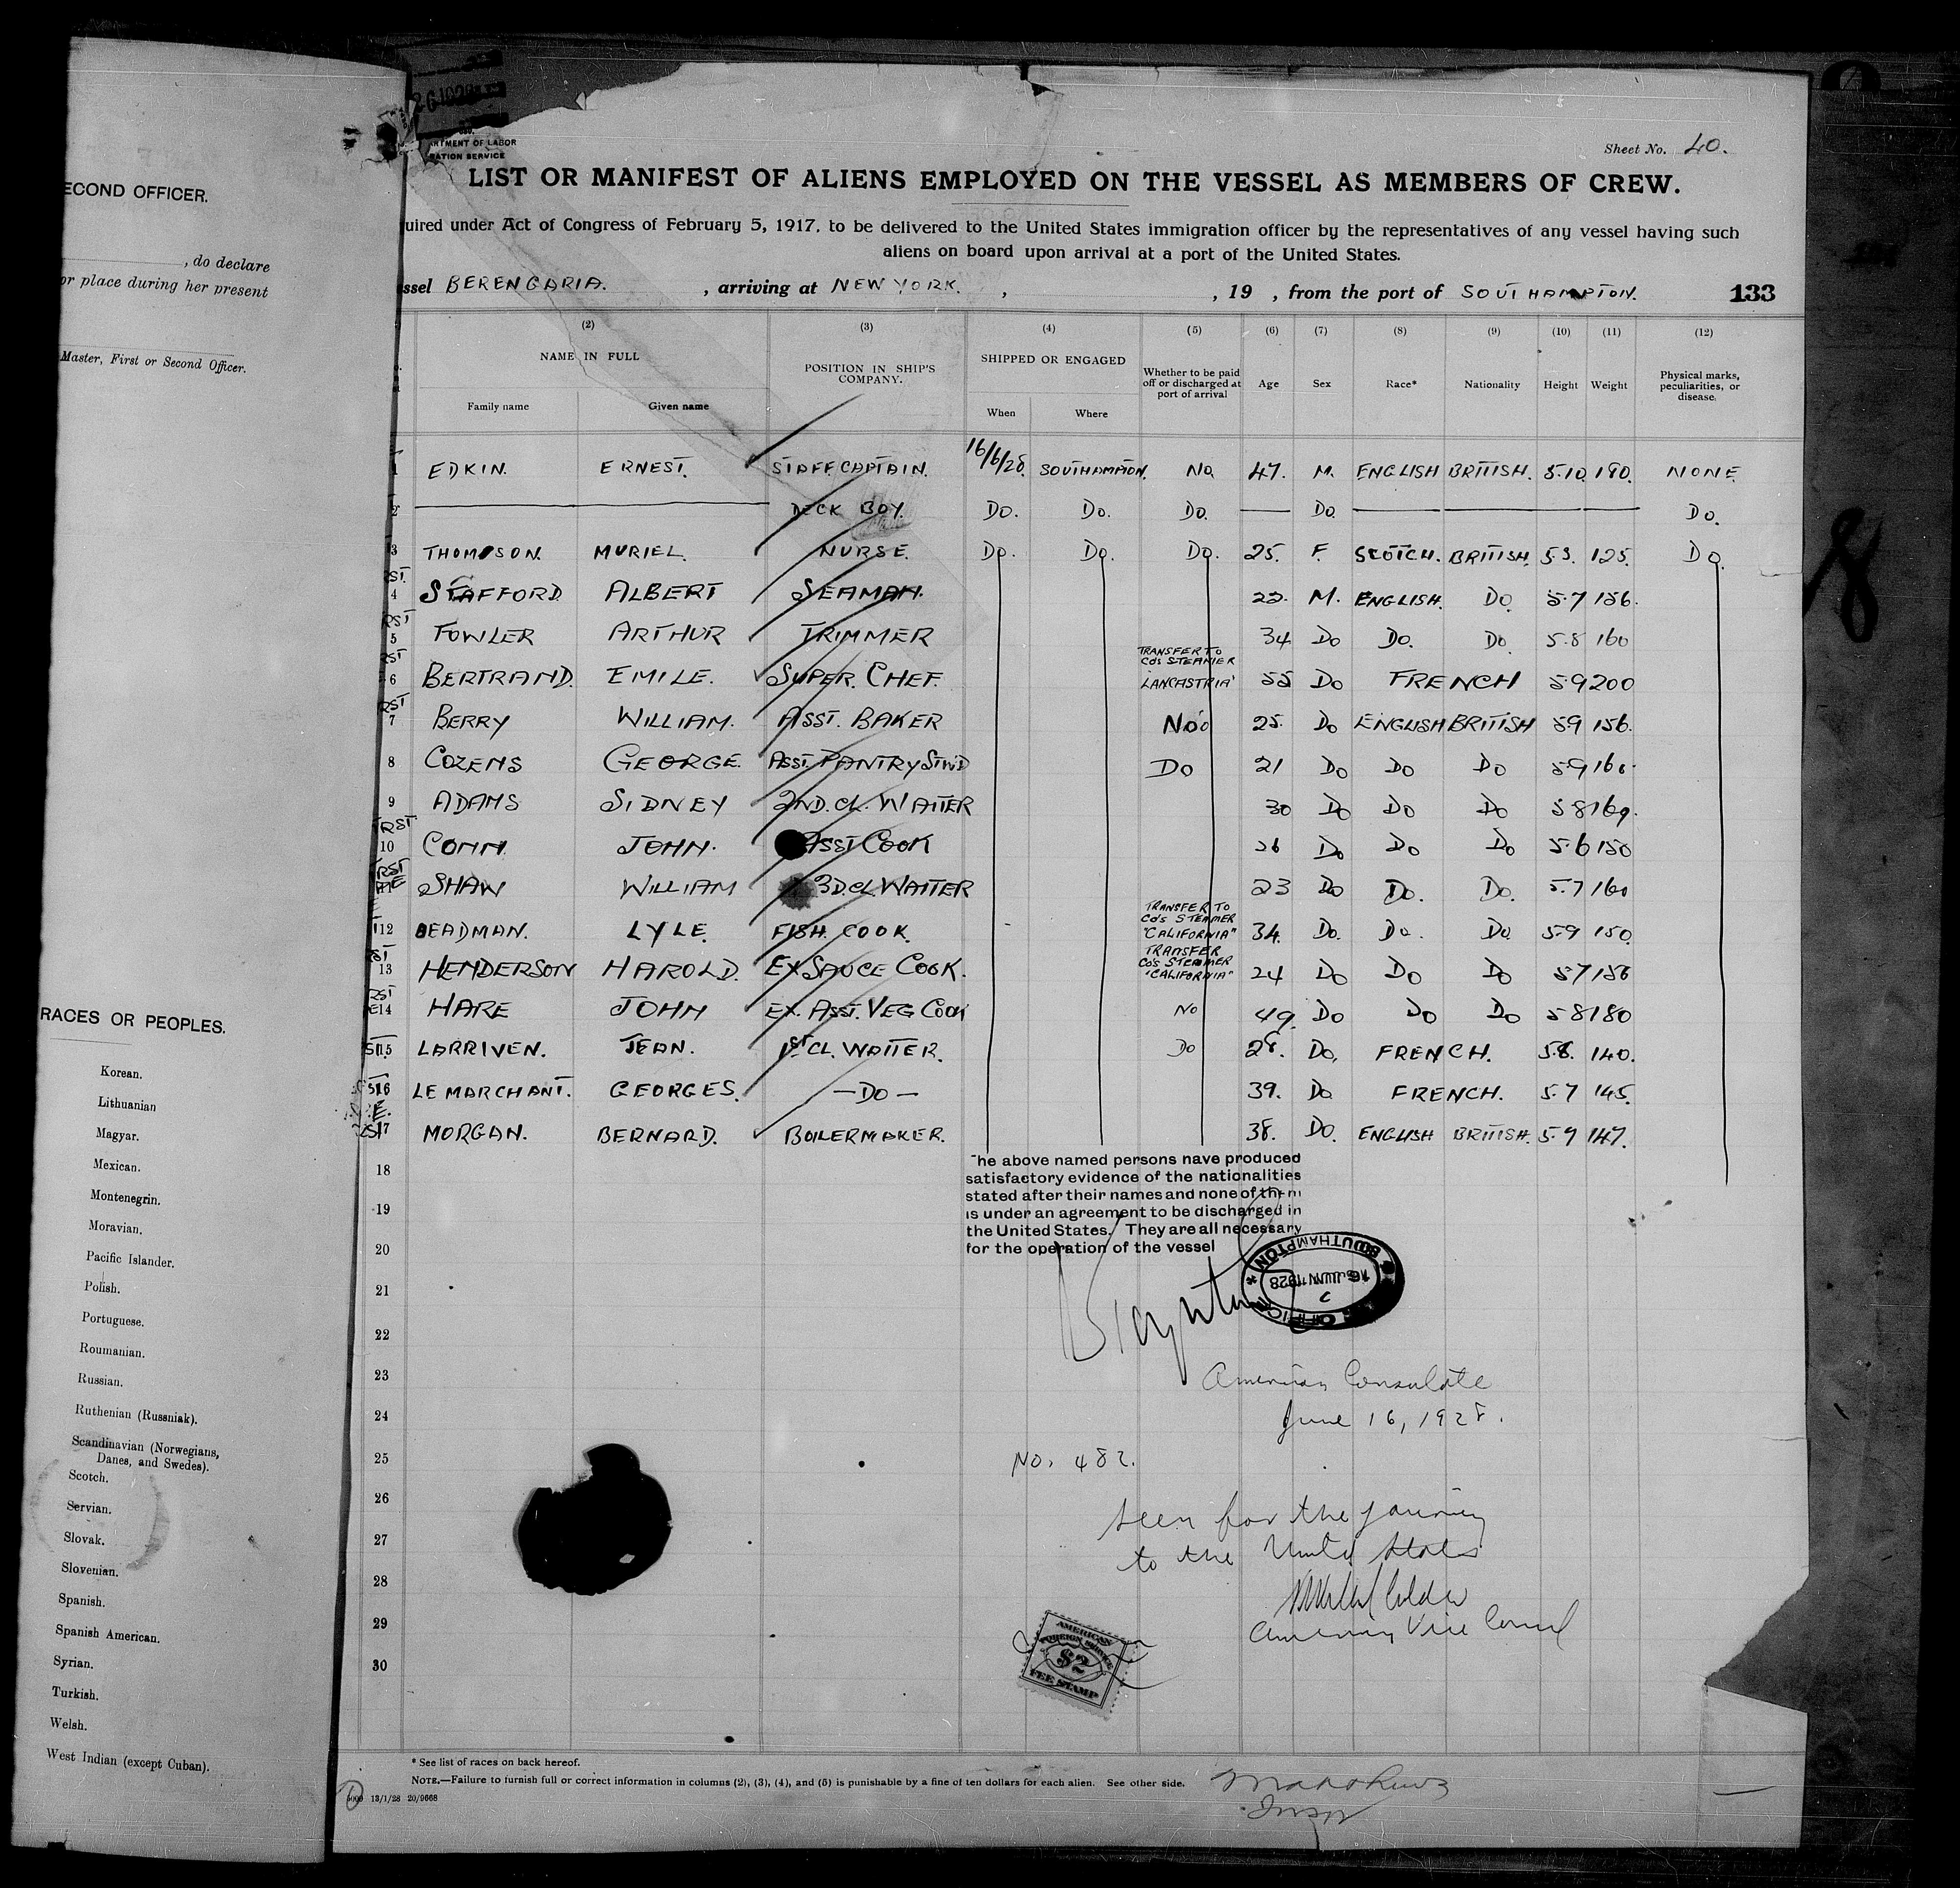 ECOND OFFICER.
, do declare
or place during her present
Master, First or Second Officer.
RACES OR PEOPLES.
Korean.
Lithuanian
Magyar.
Mexican.
Montenegrin.
Moravian.
Pacific Islander.
Polish.
Portuguese.
Roumanian.
Russian.
Ruthenian (Russniak).
Scandinavian (Norwegians,
Danes, and Swedes).
Scotch.
Servian.
Slovak.
Slovenian.
Spanish.
Spanish American.
Syrian.
Turkish.
Welsh.
West Indian (except Cuban).
RTMENT OF LABOR
RATION SERVICE
Sheet No. 40.
LIST OR MANIFEST OF ALIENS EMPLOYED ON THE VESSEL AS MEMBERS OF CREW.
uired under Act of Congress of February 5, 1917, to be delivered to the United States immigration officer by the representatives of any vessel having such
aliens on board upon arrival at a port of the United States.
ssel BERENGARIA. , arriving at NEW YORK. , , 19 , from the port of SOUTHAMPTON. 133
(2) (3) (4) (5) (6) (7) (8) (9) (10) (11) (12)
NAME IN FULL POSITION IN SHIP'S COMPANY. SHIPPED OR ENGAGED Whether to be paid off or discharged at port of arrival Age Sex Race* Nationality Height Weight Physical marks, peculiarities, or disease.
Family name Given name When Where
1 EDKIN. ERNEST. STAFF CAPTAIN. 16/6/28 SOUTHAMPTON. No 47. M. ENGLISH BRITISH. 5.10 190. NONE
2 DECK BOY. Do. Do. Do. Do. Do.
3 THOMPSON. MURIEL. NURSE. Do. Do. Do. 25. F. SCOTCH. BRITISH. 5.3. 125. Do
4 STAFFORD ALBERT SEAMAN. 22. M. ENGLISH. Do 5.7 156.
5 FOWLER ARTHUR TRIMMER 34 Do Do. Do. 5.8 160
6 BERTRAND. EMILE. SUPER. CHEF. TRANSFER TO Co's STEAMER 'LANCASTRIA' 55 Do FRENCH 5.9 200
7 BERRY WILLIAM. ASST. BAKER No 25. Do ENGLISH BRITISH 5.9 156.
8 COZENS GEORGE. ASST. PANTRY STWD Do 21 Do Do Do 5.9
9 ADAMS SIDNEY 2ND. CL. WAITER 30 Do Do Do 5.8 169.
10 CONN. JOHN. ASST COOK 26 Do Do Do 5.6 150
SHAW WILLIAM 3D. CL. WAITER 23 Do Do. Do. 5.7 160
12 DEADMAN. LYLE. FISH. COOK. TRANSFER TO Co's STEAMER "CALIFORNIA" 34. Do. Do. Do 5.9 150.
13 HENDERSON HAROLD. EX SAUCE COOK. TRANSFER Co's STEAMER "CALIFORNIA" 24 Do Do Do 5.7 156
14 HARE JOHN EX. ASST. VEG COOK No 49. Do Do Do 5.8 180
15 LARRIVEN. JEAN. 1ST CL. WAITER. Do 28. Do, FRENCH. 5.8. 140.
16 LE MARCHANT. GEORGES. —DO— 39. Do FRENCH. 5.7 145.
17 MORGAN. BERNARD. BOILERMAKER. 38. Do. ENGLISH BRITISH. 5.9 147.
18
19
20
21
22
23
24
25
26
27
28
29
30
he above named persons have produced
satisfactory evidence of the nationalities
stated after their names and none of them
is under an agreement to be discharged in
the United States. They are all necessary
for the operation of the vessel
SOUTHAMPTON
16 JUN 1928
OFFICE
American Consulate
June 16, 1928.
No. 482.
Seen for the journey
to the United States
American Vice Consul
AMERICAN
FOREIGN SERVICE
$2
FEE STAMP
* See list of races on back hereof.
NOTE.—Failure to furnish full or correct information in columns (2), (3), (4), and (5) is punishable by a fine of ten dollars for each alien. See other side.
13/1/28 20/9668